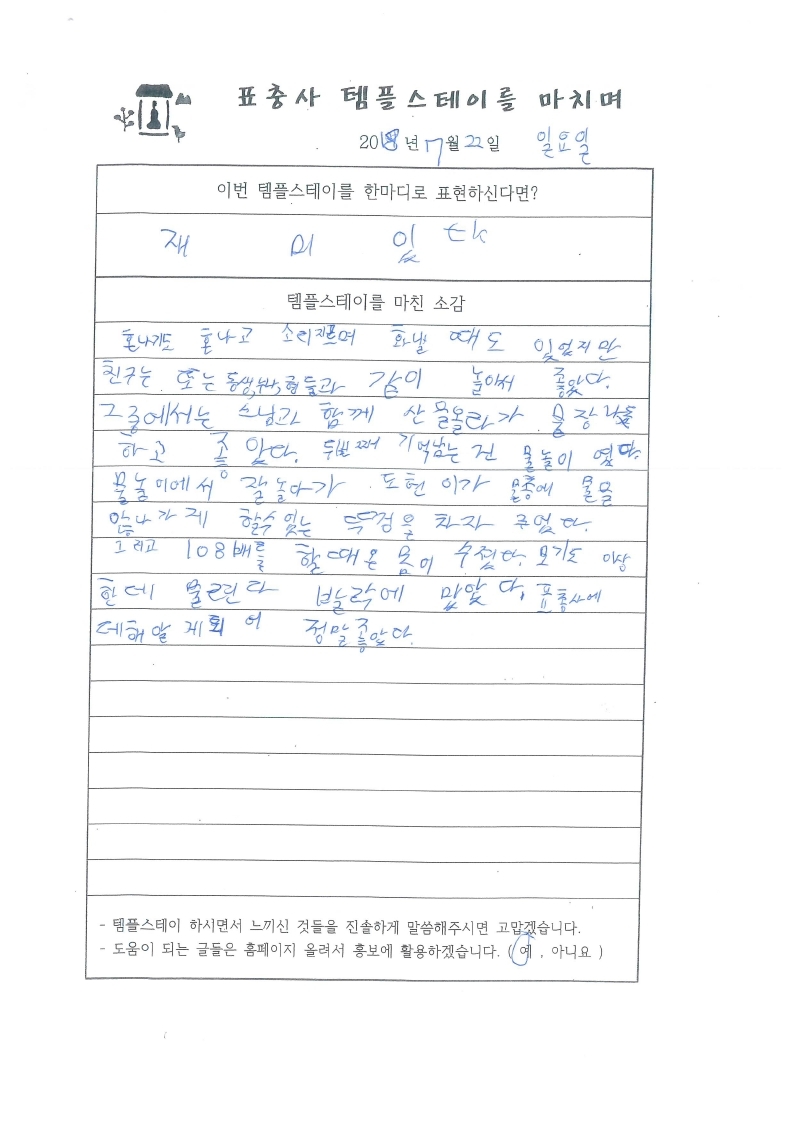 표충사 템플스테이를 마치며
2018년 7월 22일 일요일
이번 템플스테이를 한마디로 표현하신다면?
재 미 있 다
템플스테이를 마친 소감
혼나기도 혼나고 소리지르며 화날 때도 있었지만
친구는 또는 동생, 누나, 형들과 같이 놀아서 좋았다.
그중에서는 스님과 함께 산 올라가 물장난을
하고 좋았다. 두번째 기억남는 건 물놀이 였다.
물놀이에서 잘놀다가 도현이가 물총에 물을
않나가게 할수있는 뚜겅을 차자 주었다.
그리고 108배를 할때은 몸이 수졌다. 모기도 이상
한데 물린다 벼락에 맜았다. 표충사에
데해 알게되어 정말좋았다.
- 템플스테이 하시면서 느끼신 것들을 진솔하게 말씀해주시면 고맙겠습니다.
- 도움이 되는 글들은 홈페이지 올려서 홍보에 활용하겠습니다. ( 예 , 아니요 )